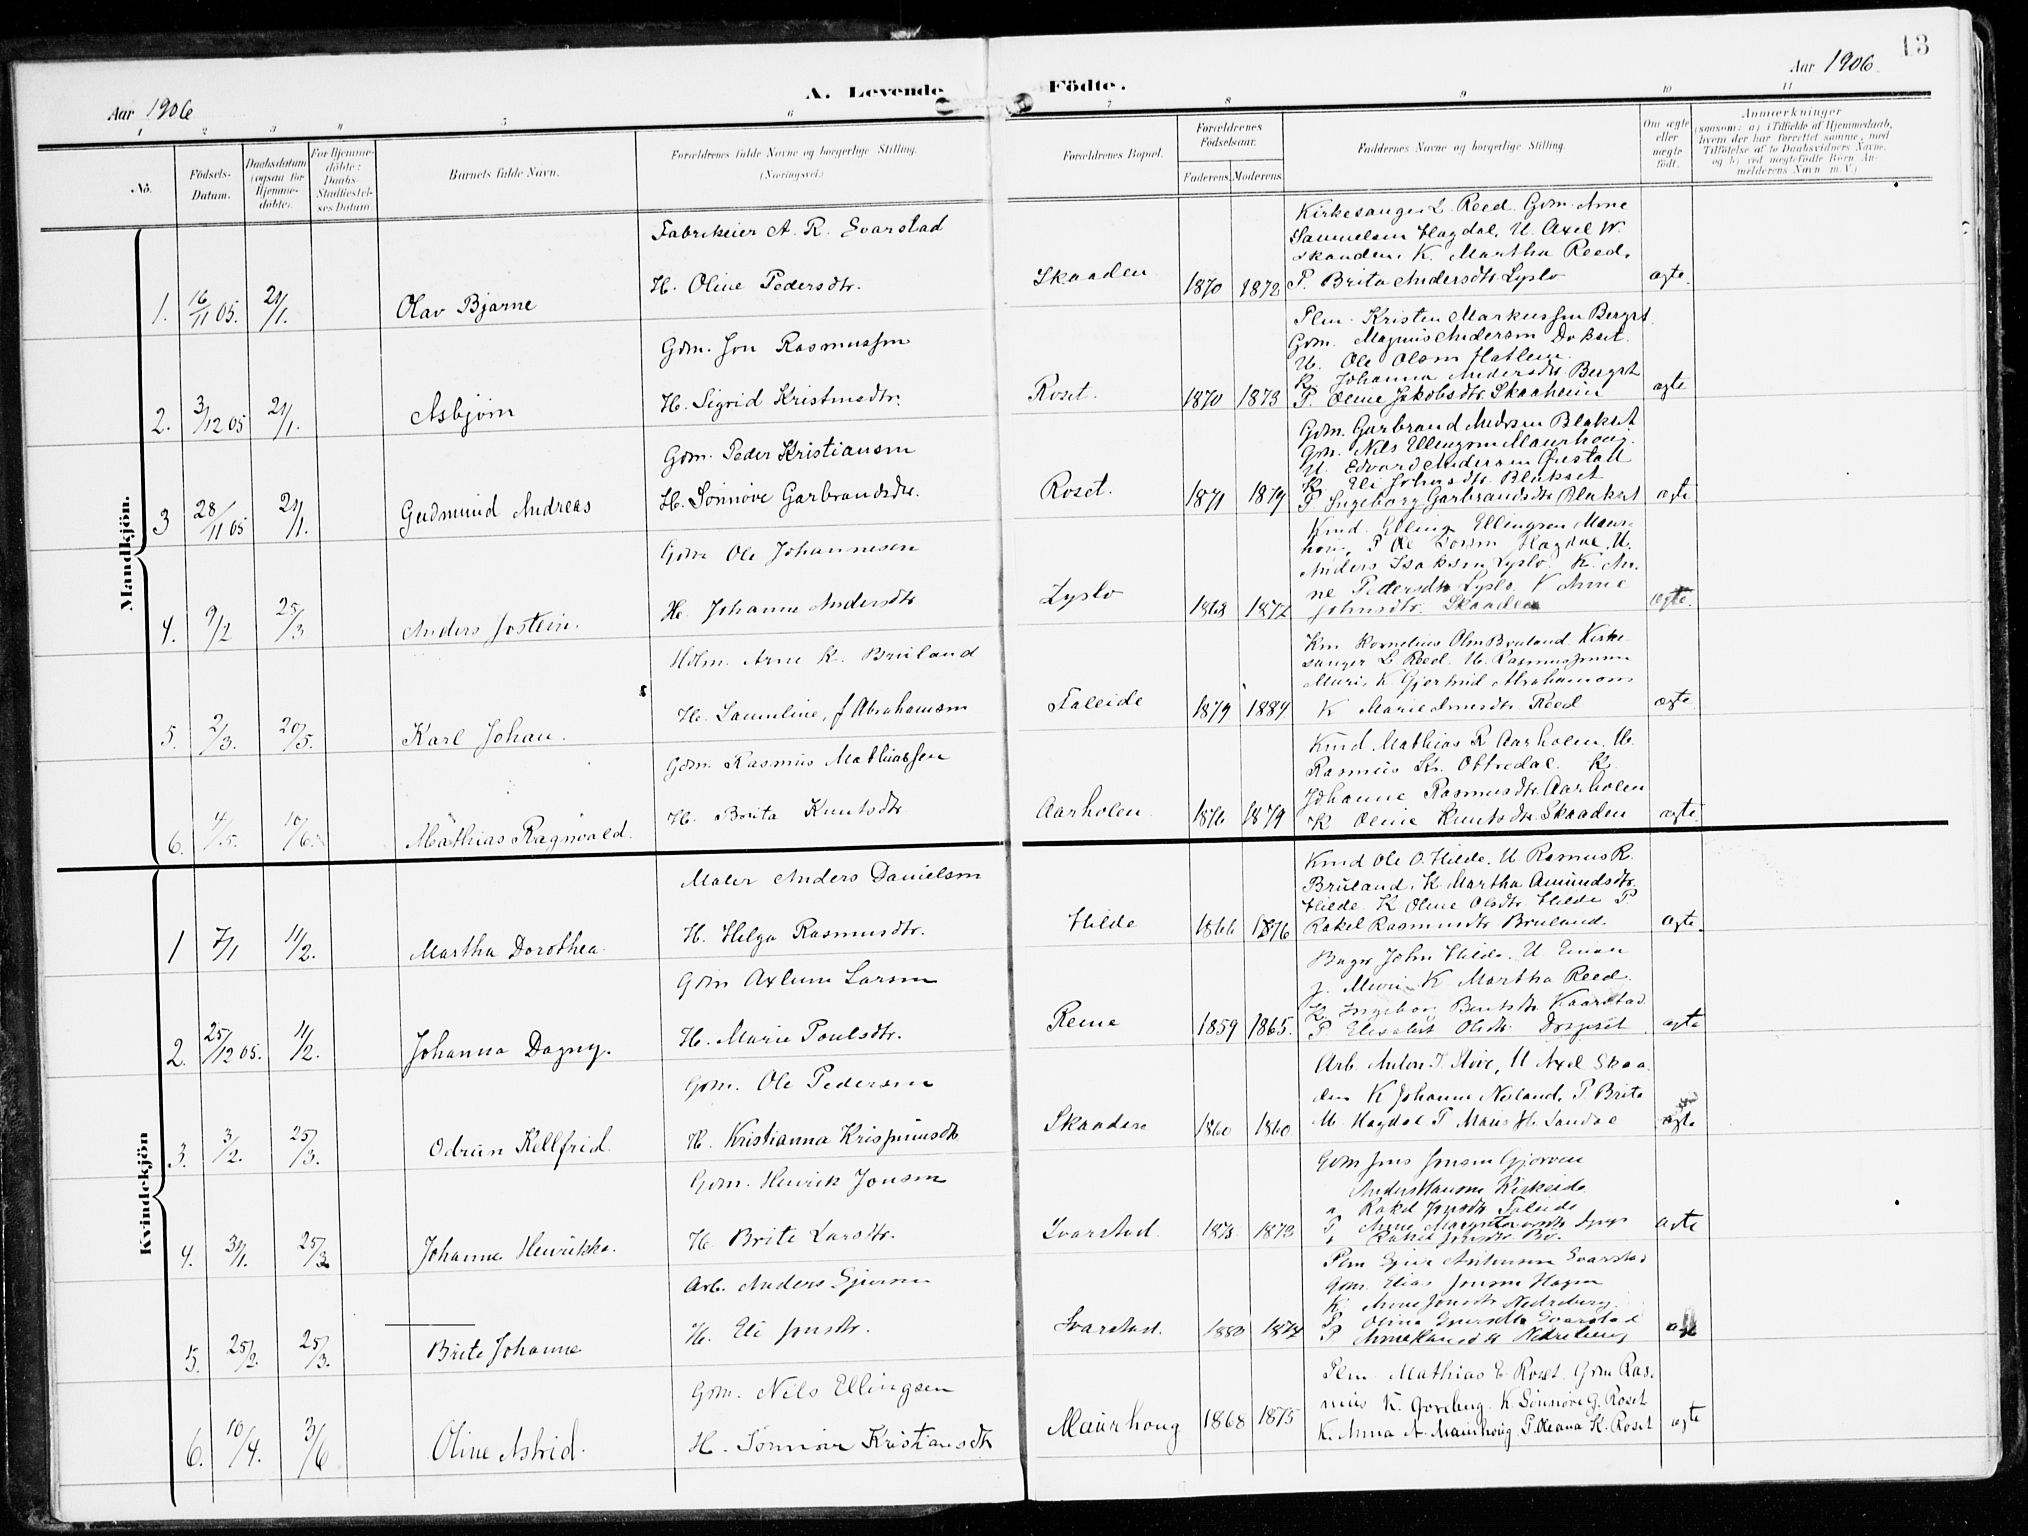 13
Aar 1906
A. Levende
Födte.
Aar 1906.
1 2 3 4 5 6 7 8 9 10 11
No.
Födsels-Datum.
Daabsdatum (ogsaa for Hjemme-döbte).
For Hjemme-döbte: Daabs-Stadfæstel-ses Datum
Barnets fulde Navn.
Forældrenes fulde Navne og borgerlige Stilling.
(Næringsvei.)
Forældrenes Bopæl.
Forældrenes Födselsaar.
Faderens. Moderens.
Faddernes Navne og borgerlige Stilling.
Om ægte eller uægte født.
Anmærkninger
(saasom: a) i Tilfælde af Hjemmedaab, hvem der har forrettet samme, med Tilföielse af to Daabsvidners Navne, og b) ved uægte födte Börn An-melderens Navn m. V.)
Mandkjön.
1. 16/11 05. 21/1. Olav Bjarne
Fabrikeier A. R. Svarstad
H. Oline Pedersdtr.
Skaaden 1870 1873
Kirkesanger L. Reed. Gdm. Arne
Samuelsen Hagdal, U. Axel W
Skaaden, K. Martha Reed,
P. Brita Andersdtr Lyslo
ægte.
2. 3/12 05 21/1. Asbjørn
Gdm. Jon Rasmussen
H. Sigrid Kristensdtr.
Roset. 1870 1873
Plm. Kristen Markussen Bergset
Gdm. Magnus Andersen Dokset.
U. Ole Olsen Hatlem.
K. Johanna Andersdtr Bergset
P. Oline Jakobsdtr. Skaaheim
ægte
3 28/11 05 21/1. Gudmund Andreas
Gdm. Peder Kristiansen
H. Sønnøve Garbrandsdtr.
Roset. 1871 1879
Gdm. Garbrand Andersen Blakset
Gdm. Nils Ellingsen Maurhoug.
U. Edvard Andersen
K. Eli Johnsdtr. Blakset
P Ingeborg Garbrandsdtr Blakset
ægte
4. 9/2 25/3 Anders Jostein.
Gdm Ole Johannesen
H. Johanne Andersdtr
Lyslo 1868 1872
Elling Ellingsen Maur-
Hagdal, U.
Anders Isaksen Lyslo. K. An-
ne Pedersdtr Lyslo. K Anne
Johnsdtr. Skaaden
ægte.
5. 2/3. 20/5. Karl Johan.
Hdm. Arne K. Bruland
H. Samuline, f Abrahamsen
Faleide 1879 1884
Km Kornelius Olsen Bruland. Kirke-
sanger L Reed. U. Rasmus
Muri. K Gjertrud Abrahamsen
K Marie Reed
ægte
6. 4/5. 10/6. Mathias Ragnvald.
Gdm. Rasmus Mathiassen
H. Brita Knutsdtr
Aarholen. 1876 1879
Kmd Mathias R Aarholen. U.
Rasmus Kr. Ottredal. K.
Johanne Rasmusdtr. Aarholen
K Oline Knutsdtr. Skaaden
ægte.
Kvindekjön
1 7/1 11/2. Martha Dorothea.
Maler Anders Danielsen
H. Helga Rasmusdtr.
Hilde 1866 1876
Kmd Ole O. Hilde. U Rasmus R.
Bruland. K. Martha Amundsdtr.
Hilde K Oline Olsdtr. Hilde P
Rakel Rasmusdtr Bruland.
ægte.
2. 25/12 05. 11/2. Johanna Dagny.
Gdm Larsen
H. Marie Poulsdtr.
Reme 1859 1865.
John Hilde. U
Muri K Martha Reed.
K Ingeborg Bentsdtr Kaarstad
P Elisabet Olsdtr.
ægte
3. 3/2. 25/3. Odrun Kellfrid.
Gdm. Ole Pedersen
H. Kristianna
Skaaden 1860 1860
Arb. Anton T. U Axel Skaa-
den K Johanne Nesland, P. Brite
M Hagdal P Sandal
ægte
4. 31/1. 25/3 Johanne Henrikke.
Gdm. Henrik Jonsen
H. Brite Larsdtr.
Svarstad. 1873
Gdm Jens Jensen Gjørven
Anders Hansen Kirkeide
Rakel Jonsdtr Faleide
ægte
5. 25/2. 25/3. Brite Johanne
Arb. Anders
H. Eli Jonsdtr.
Svarstad. 1880 1874
Plm Svarstad
Gdm. Elias Jonsen Hagen
K. Anne Jonsdtr Nedreberg.
P Svarstad
P Nedreberg
6. 10/4. 3/6 Oline Astrid.
Gdm. Nils Ellingsen
H. Sønnøve Kristiansdtr
Maurhoug 1868 1875
Plm. Mathias E. Roset. Gdm Ras-
mus K. Gjørling. K Sønnøve G. Roset
K. Anna A. Maurhoug. P. Oleana K. Roset
ægte